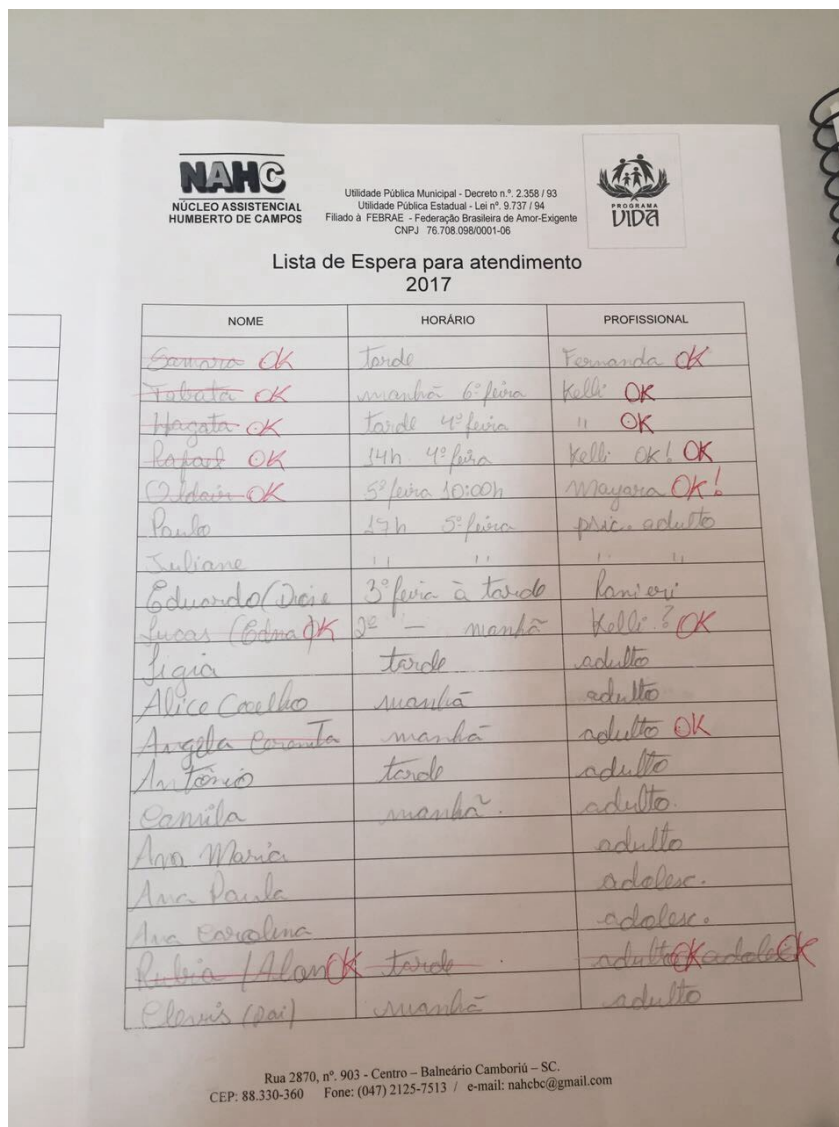 NAHC
NÚCLEO ASSISTENCIAL
HUMBERTO DE CAMPOS
Utilidade Pública Municipal - Decreto n.º. 2.358 / 93
Utilidade Pública Estadual - Lei nº. 9.737 / 94
Filiado à FEBRAE - Federação Brasileira de Amor-Exigente
CNPJ 76.708.098/0001-06
PROGRAMA
VIDA
Lista de Espera para atendimento
2017
NOME HORÁRIO PROFISSIONAL
Samara OK tarde Fernanda OK
Tabata OK manhã 6ª feira Kelli OK
Hagata OK tarde 4ª feira " OK
Rafael OK 14h 4ª feira Kelli OK! OK
OK 5ª feira 10:00h Mayara OK!
Paulo 17h 5ª feira psic. adulto
Juliane " " " "
Eduardo ( 3ª feira à tarde Ranieri
Lucas (Edna) OK 2ª — manhã Kelli? OK
Ligia tarde adulto
Alice Coelho manhã adulto
Angela manhã adulto OK
Antônio tarde adulto
Camila manhã. adulto.
Ana Maria adulto
Ana Paula adolesc.
Ana Carolina adolesc.
Rubia / Alan OK tarde adulto OK adolesc OK
Clovis (pai) manhã adulto
Rua 2870, nº. 903 - Centro – Balneário Camboriú – SC.
CEP: 88.330-360 Fone: (047) 2125-7513 / e-mail: nahcbc@gmail.com